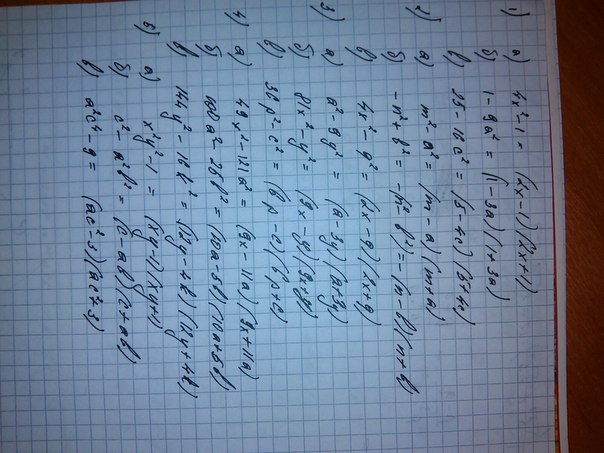 1) а) 4x² - 1 = (2x - 1)(2x + 1)
б) 1 - 9a² = (1 - 3a)(1 + 3a)
в) 25 - 16c² = (5 - 4c)(5 + 4c)
2) а) m² - a² = (m - a)(m + a)
б) -n² + b² = -(n² - b²) = -(n - b)(n + b)
в) 4x² - g² = (2x - g)(2x + g)
3) а) a² - 9y² = (a - 3y)(a + 3y)
б) 81x² - y² = (9x - y)(9x + y)
в) 36p² - c² = (6p - c)(6p + c)
4) а) 49x² - 121a² = (9x - 11a)(9x + 11a)
б) 100a² - 25b² = (10a - 5b)(10a + 5b)
в) 144y² - 16k² = (12y - 4k)(12y + 4k)
5) а) x²y² - 1 = (xy - 1)(xy + 1)
б) c² - a²b² = (c - ab)(c + ab)
в) a²c⁴ - 9 = (ac² - 3)(ac² + 3)